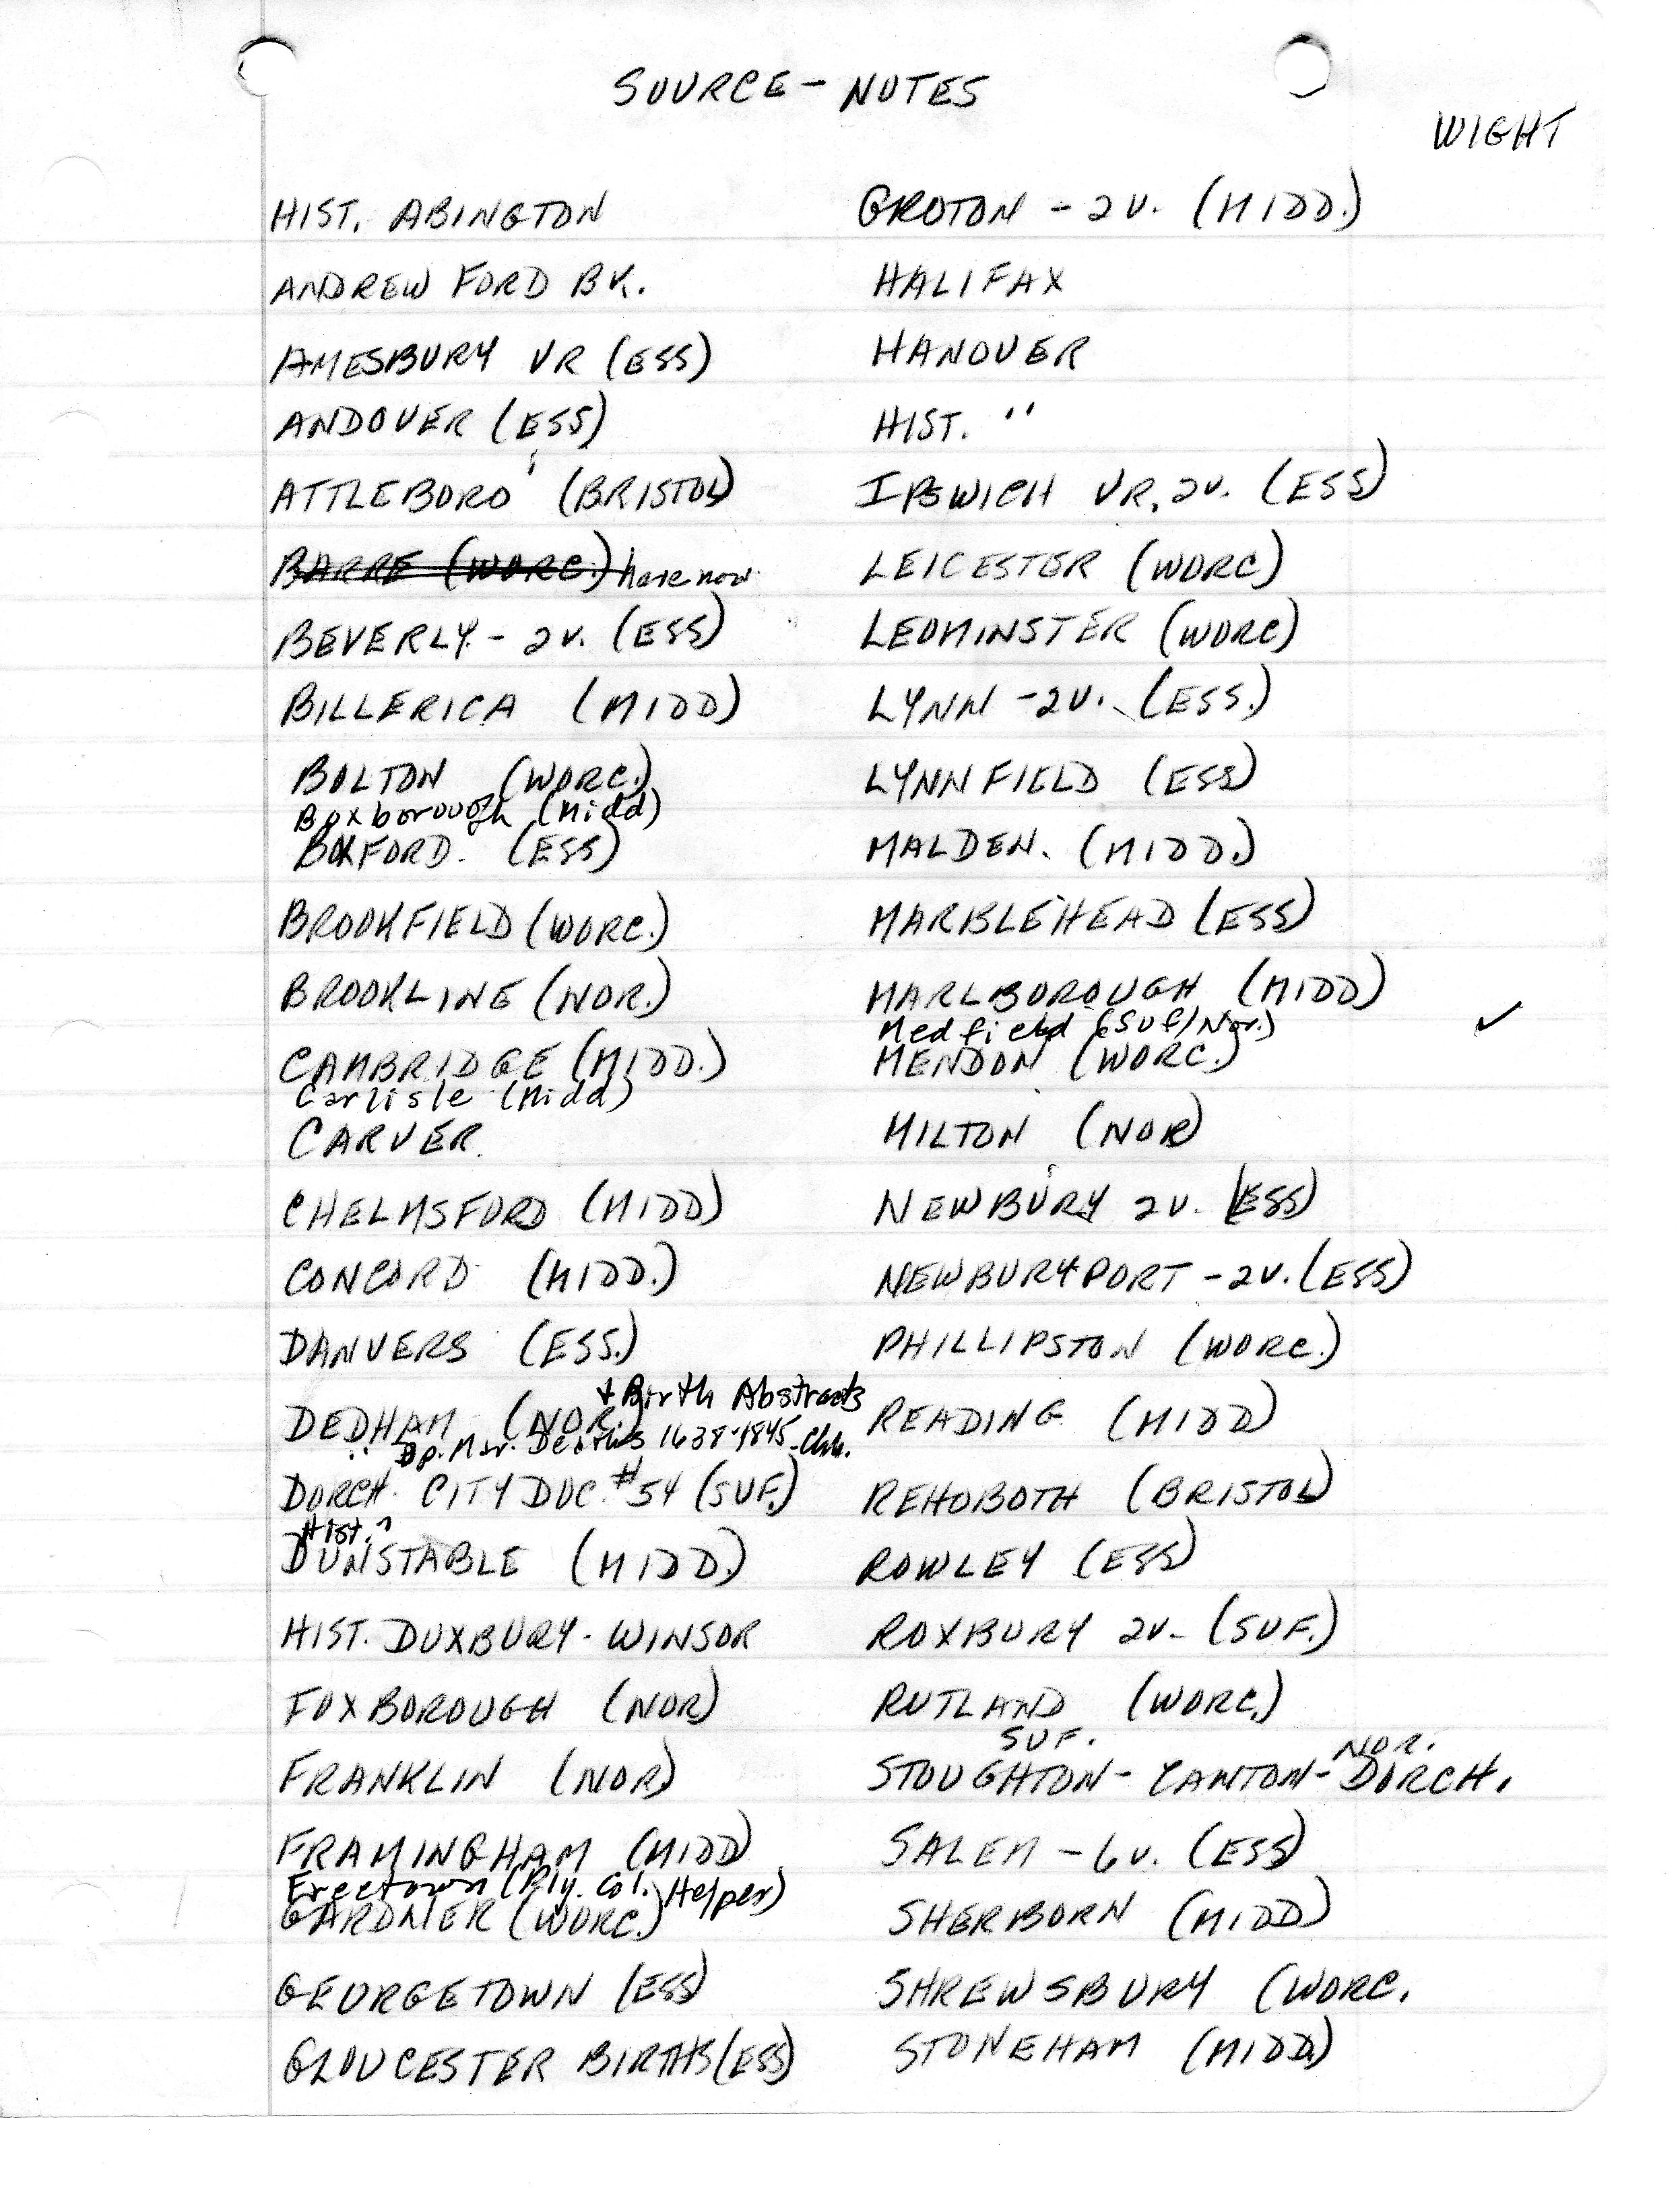 SOURCE - NOTES
WIGHT
HIST. ABINGTON
ANDREW FORD BK.
AMESBURY VR (ESS)
ANDOVER (ESS)
ATTLEBORO (BRISTOL)
BARRE (WORC.) have now
BEVERLY - 2v. (ESS)
BILLERICA (MIDD)
BOLTON (WORC.)
Boxborough (Midd)
BOXFORD. (ESS)
BROOKFIELD (WORC.)
BROOKLINE (NOR.)
CAMBRIDGE (MIDD.)
Carlisle (Midd)
CARVER.
CHELMSFORD (MIDD)
CONCORD (MIDD.)
DANVERS (ESS.)
+ Birth Abstracts
DEDHAM (NOR.)
" Bp. Mar. Deaths 1638-1845 - Chh.
DORCH. CITY DOC. #54 (SUF.)
Hist. ^
DUNSTABLE (MIDD.)
HIST. DUXBURY - WINSOR
FOXBOROUGH (NOR)
FRANKLIN (NOR)
FRAMINGHAM (MIDD)
(Ply. Col. Helper)
GARDNER (WORC.)
GEORGETOWN (ESS)
GLOUCESTER BIRTHS (ESS)
GROTON - 2v. (MIDD.)
HALIFAX
HANOVER
HIST. "
IPSWICH VR, 2v. (ESS)
LEICESTER (WORC)
LEOMINSTER (WORC)
LYNN - 2v. (ESS.)
LYNNFIELD (ESS)
MALDEN. (MIDD.)
MARBLEHEAD (ESS)
MARLBOROUGH (MIDD)
Medfield (Suf/Nor.) ✓
MENDON (WORC.)
MILTON (NOR)
NEWBURY 2v. (ESS)
NEWBURYPORT - 2v. (ESS)
PHILLIPSTON (WORC.)
READING (MIDD)
REHOBOTH (BRISTOL)
ROWLEY (ESS)
ROXBURY 2v - (SUF.)
RUTLAND (WORC.)
SUF. NOR.
STOUGHTON - CANTON - DORCH.
SALEM - 6v. (ESS)
SHERBORN (MIDD)
SHREWSBURY (WORC.
STONEHAM (MIDD)